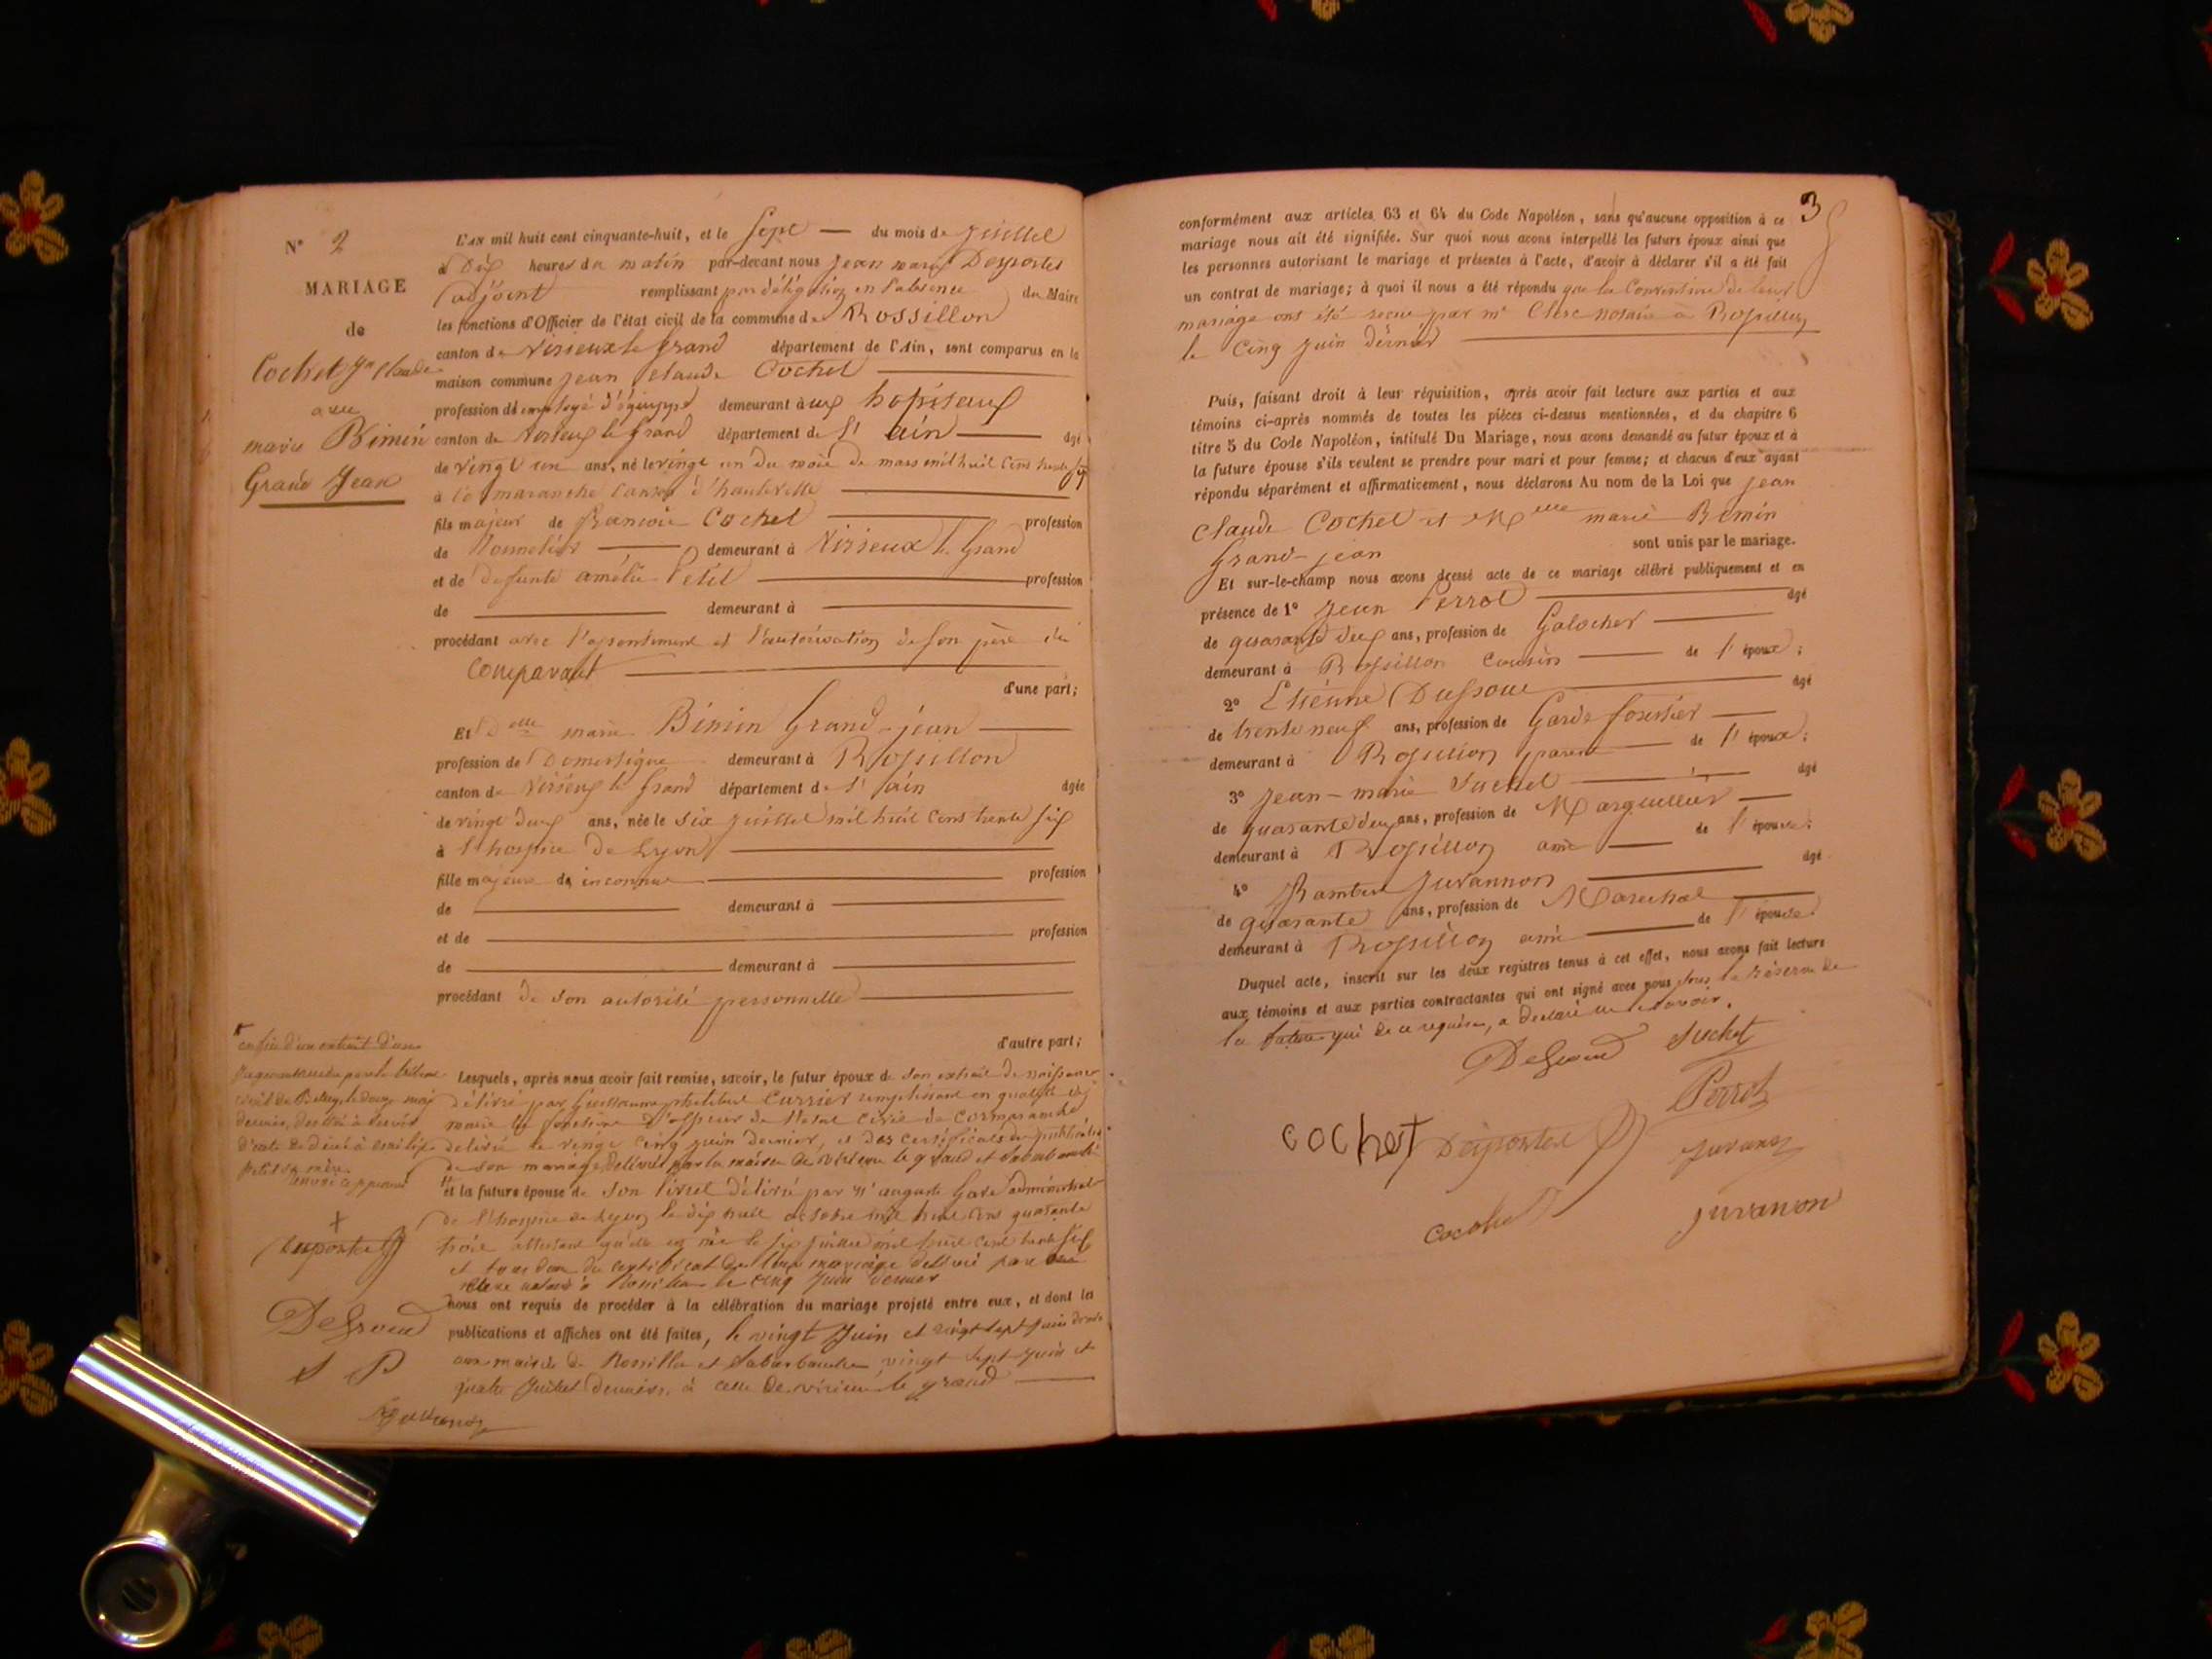 N° 2
MARIAGE
de
Cochet Jn Claude
avec
marie Bimin
Grand Jean
L'AN mil huit cent cinquante-huit, et le Sept — du mois de Juillet
à Dix heures du matin par-devant nous Jean marie Desportes
adjoint remplissant par délégation en l'absence du Maire
les fonctions d'Officier de l'état civil de la commune de Rossillon
canton de Virieux le grand département de l'Ain, sont comparus en la
maison commune Jean Claude Cochet
profession d'employé d'équippe demeurant à aux hopitaux
canton de Virieux le Grand département de l'ain — âgé
de vingt un ans, né le vingt un du mois de mars mil huit cent trente
à canton d'hauteville
fils majeur de françois Cochet profession
de demeurant à Virieux le Grand
et de defunte amélie Petit profession
de demeurant à
procédant avec l'assentiment et l'autorisation de son père
Comparant
d'une part;
Et Delle marie Bimin Grand-jean
profession de Domestique demeurant à Rossillon
canton de Virieux le Grand département de l'ain âgée
de vingt deux ans, née le six juillet mil huit cent trente six
à l'hospice de Lyon
fille majeure de inconnue profession
de demeurant à
et de profession
de demeurant à
procédant de son autorité personnelle
d'autre part;
Lesquels, après nous avoir fait remise, savoir, le futur époux de son extrait de naissance
délivré par Guillaume philibert Currier remplissant en qualité de
maire les fonctions d'officier de l'état civil de Cormaranche
délivré le vingt cinq juin dernier, et des certificats de publication
de son mariage, délivrés par la mairie de virieu le grand et
et la future épouse de son livret délivré par Mr auguste administrateur
de l'hospice de Lyon le dix huit octobre mil huit cent quarante
trois attestant qu'elle est née le six juillet mil huit cent trente six
et tous deux du certificat de leur mariage délivré par
Clerc notaire à Rossillon le cinq juin dernier
nous ont requis de procéder à la célébration du mariage projeté entre eux, et dont les
publications et affiches ont été faites, le vingt Juin et vingt sept juin
aux mairies de Rossillon et vingt sept juin et
quatre Juillet derniers, à celle de virieu le grand
enfin d'un extrait d'un
jugement rendu par le tribunal
civil de Belley, le douze mai
dernier, destiné à servir
d'acte de décès à amélie
Petit sa mère.
renvoi approuvé
+
Desportes
Degroud
S P
Juvanon
3
conformément aux articles 63 et 64 du Code Napoléon, sans qu'aucune opposition à ce
mariage nous ait été signifiée. Sur quoi nous avons interpellé les futurs époux ainsi que
les personnes autorisant le mariage et présentes à l'acte, d'avoir à déclarer s'il a été fait
un contrat de mariage; à quoi il nous a été répondu que les Conventions de leur
mariage ont été reçue par mr Clerc notaire à Rossillon
le Cinq Juin dernier
Puis, faisant droit à leur réquisition, après avoir fait lecture aux parties et aux
témoins ci-après nommés de toutes les pièces ci-dessus mentionnées, et du chapitre 6
titre 5 du Code Napoléon, intitulé Du Mariage, nous avons demandé au futur époux et à
la future épouse s'ils veulent se prendre pour mari et pour femme; et chacun d'eux ayant
répondu séparément et affirmativement, nous déclarons Au nom de la Loi que Jean
Claude Cochet et Melle marie Bimin
Grand-jean sont unis par le mariage.
Et sur-le-champ nous avons dressé acte de ce mariage célébré publiquement et en
présence de 1° Jean Perrot âgé
de quarante deux ans, profession de Galocher
demeurant à Rossillon Cousin — de l' époux;
2° Etienne Dufsoue âgé
de trente neuf ans, profession de Garde forestier
demeurant à Rossillon parent — de l' époux;
3° Jean-marie Suchet âgé
de quarante deux ans, profession de Marguillier
demeurant à Rossillon ami — de l' épouse;
4° Juvannon âgé
de quarante ans, profession de Marechal
demeurant à Rossillon ami — de l' épouse.
Duquel acte, inscrit sur les deux registres tenus à cet effet, nous avons fait lecture
aux témoins et aux parties contractantes qui ont signé avec nous sous la réserve de
la future qui de ce requise, a déclaré ne le savoir.
Degroud Suchet
Perrot
cochet Desportes Juvanon
Cochet Juvanon